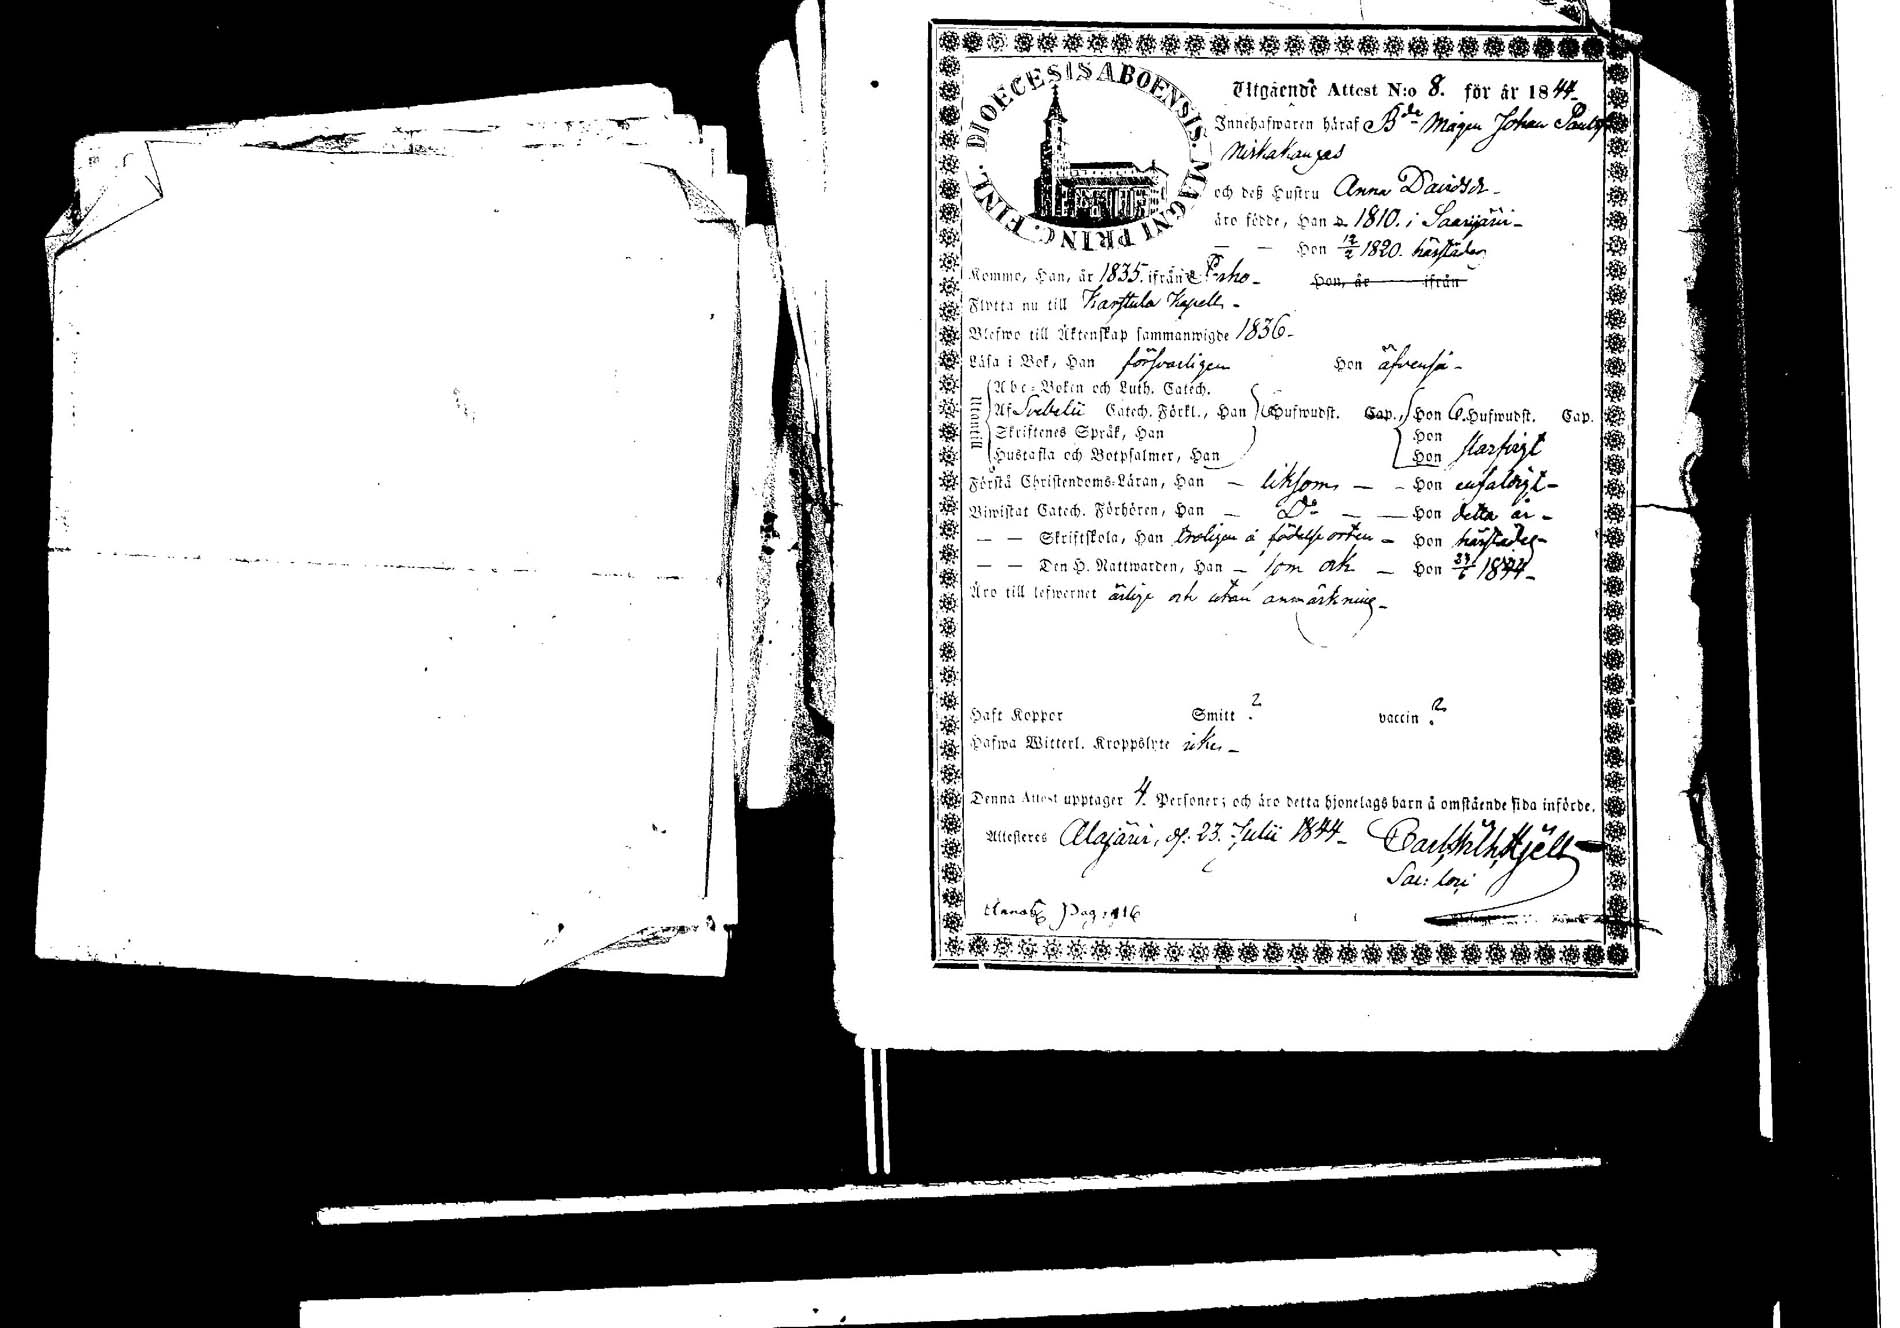 DIOECESIS ABOENSIS. MAGNI PRINC. FINL.
Utgående Attest N:o 8. för år 1844.
Innehafwaren häraf Bde Mågen Johan Pauls
Niskakangas
och deß Hustru Anna Davidsdr
äro födde, Han 1810. i Saarijärvi
— — Hon 12/2 1820. härstädes
Komne, Han, år 1835. ifrån Perho Hon, år ifrån
Flytta nu till Karstula Kapell
Blefwo till Äktenskap sammanwigde 1836
Läsa i Bok, Han försvarligen Hon äfvenså
Utantill
Abc-Boken och Luth. Catech.
Af Svebelii Catech. Förkl., Han 6 Hufwudst. Cap., Hon 6. Hufwudst. Cap.
Skriftenes Språk, Han Hon
Hustafla och Botpsalmer, Han Hon
Förstå Christendoms-Läran, Han — liksom — Hon enfaldigt
Biwistat Catech. Förhören, Han — Do — — Hon detta år
— — Skriftskola, Han troligen å födelseorten Hon härstädes
— — Den H. Nattwarden, Han — som och — Hon 24/6 1844
Äro till lefwernet ärlige och utan anmärkning
Haft Koppor Smitt ? vaccin ?
Hafwa Witterl. Kroppslyte icke
Denna Attest upptager 4. Personer; och äro detta hjonelags barn å omstående sida införde.
Attesteres Alajärvi, d. 23. Julii 1844 Carl Wilh. Hjelt
Sac: loci
Pag: 916